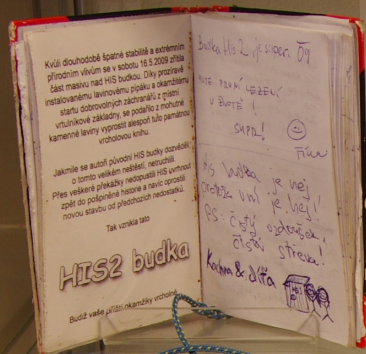 Kvůli dlouhodobě špatné stabilitě a extrémním
přírodním vlivům se v sobotu 16.5.2009 zřítila
část masivu nad HIS budkou. Díky prozíravě
instalovanému lavinovému pípáku a okamžitému
startu dobrovolných záchranářů z místní
vrtulníkové základny, se podařilo z mohutné
kamenné laviny vyprostit alespoň tuto památnou
vrcholovou knihu.
Jakmile se autoři původní HIS budky dozvěděli
o tomto velikém neštěstí, netruchlili.
Přes veškeré překážky nedopustili HIS uvrhnout
zpět do pošpiněné historie a navíc oprostili
novou stavbu od předchozích nedostatků.
Tak vznikla tato
HIS2 budka
Budiž vaše příští okamžiky vrcholné
Budka HIS 2 je super. 09
první lezení
v životě!
SUPR!
HIS budka je nej
uvnitř je nej!
PS: čistý vzdoušek,
čistá střecha!
Kačka & Jiřa